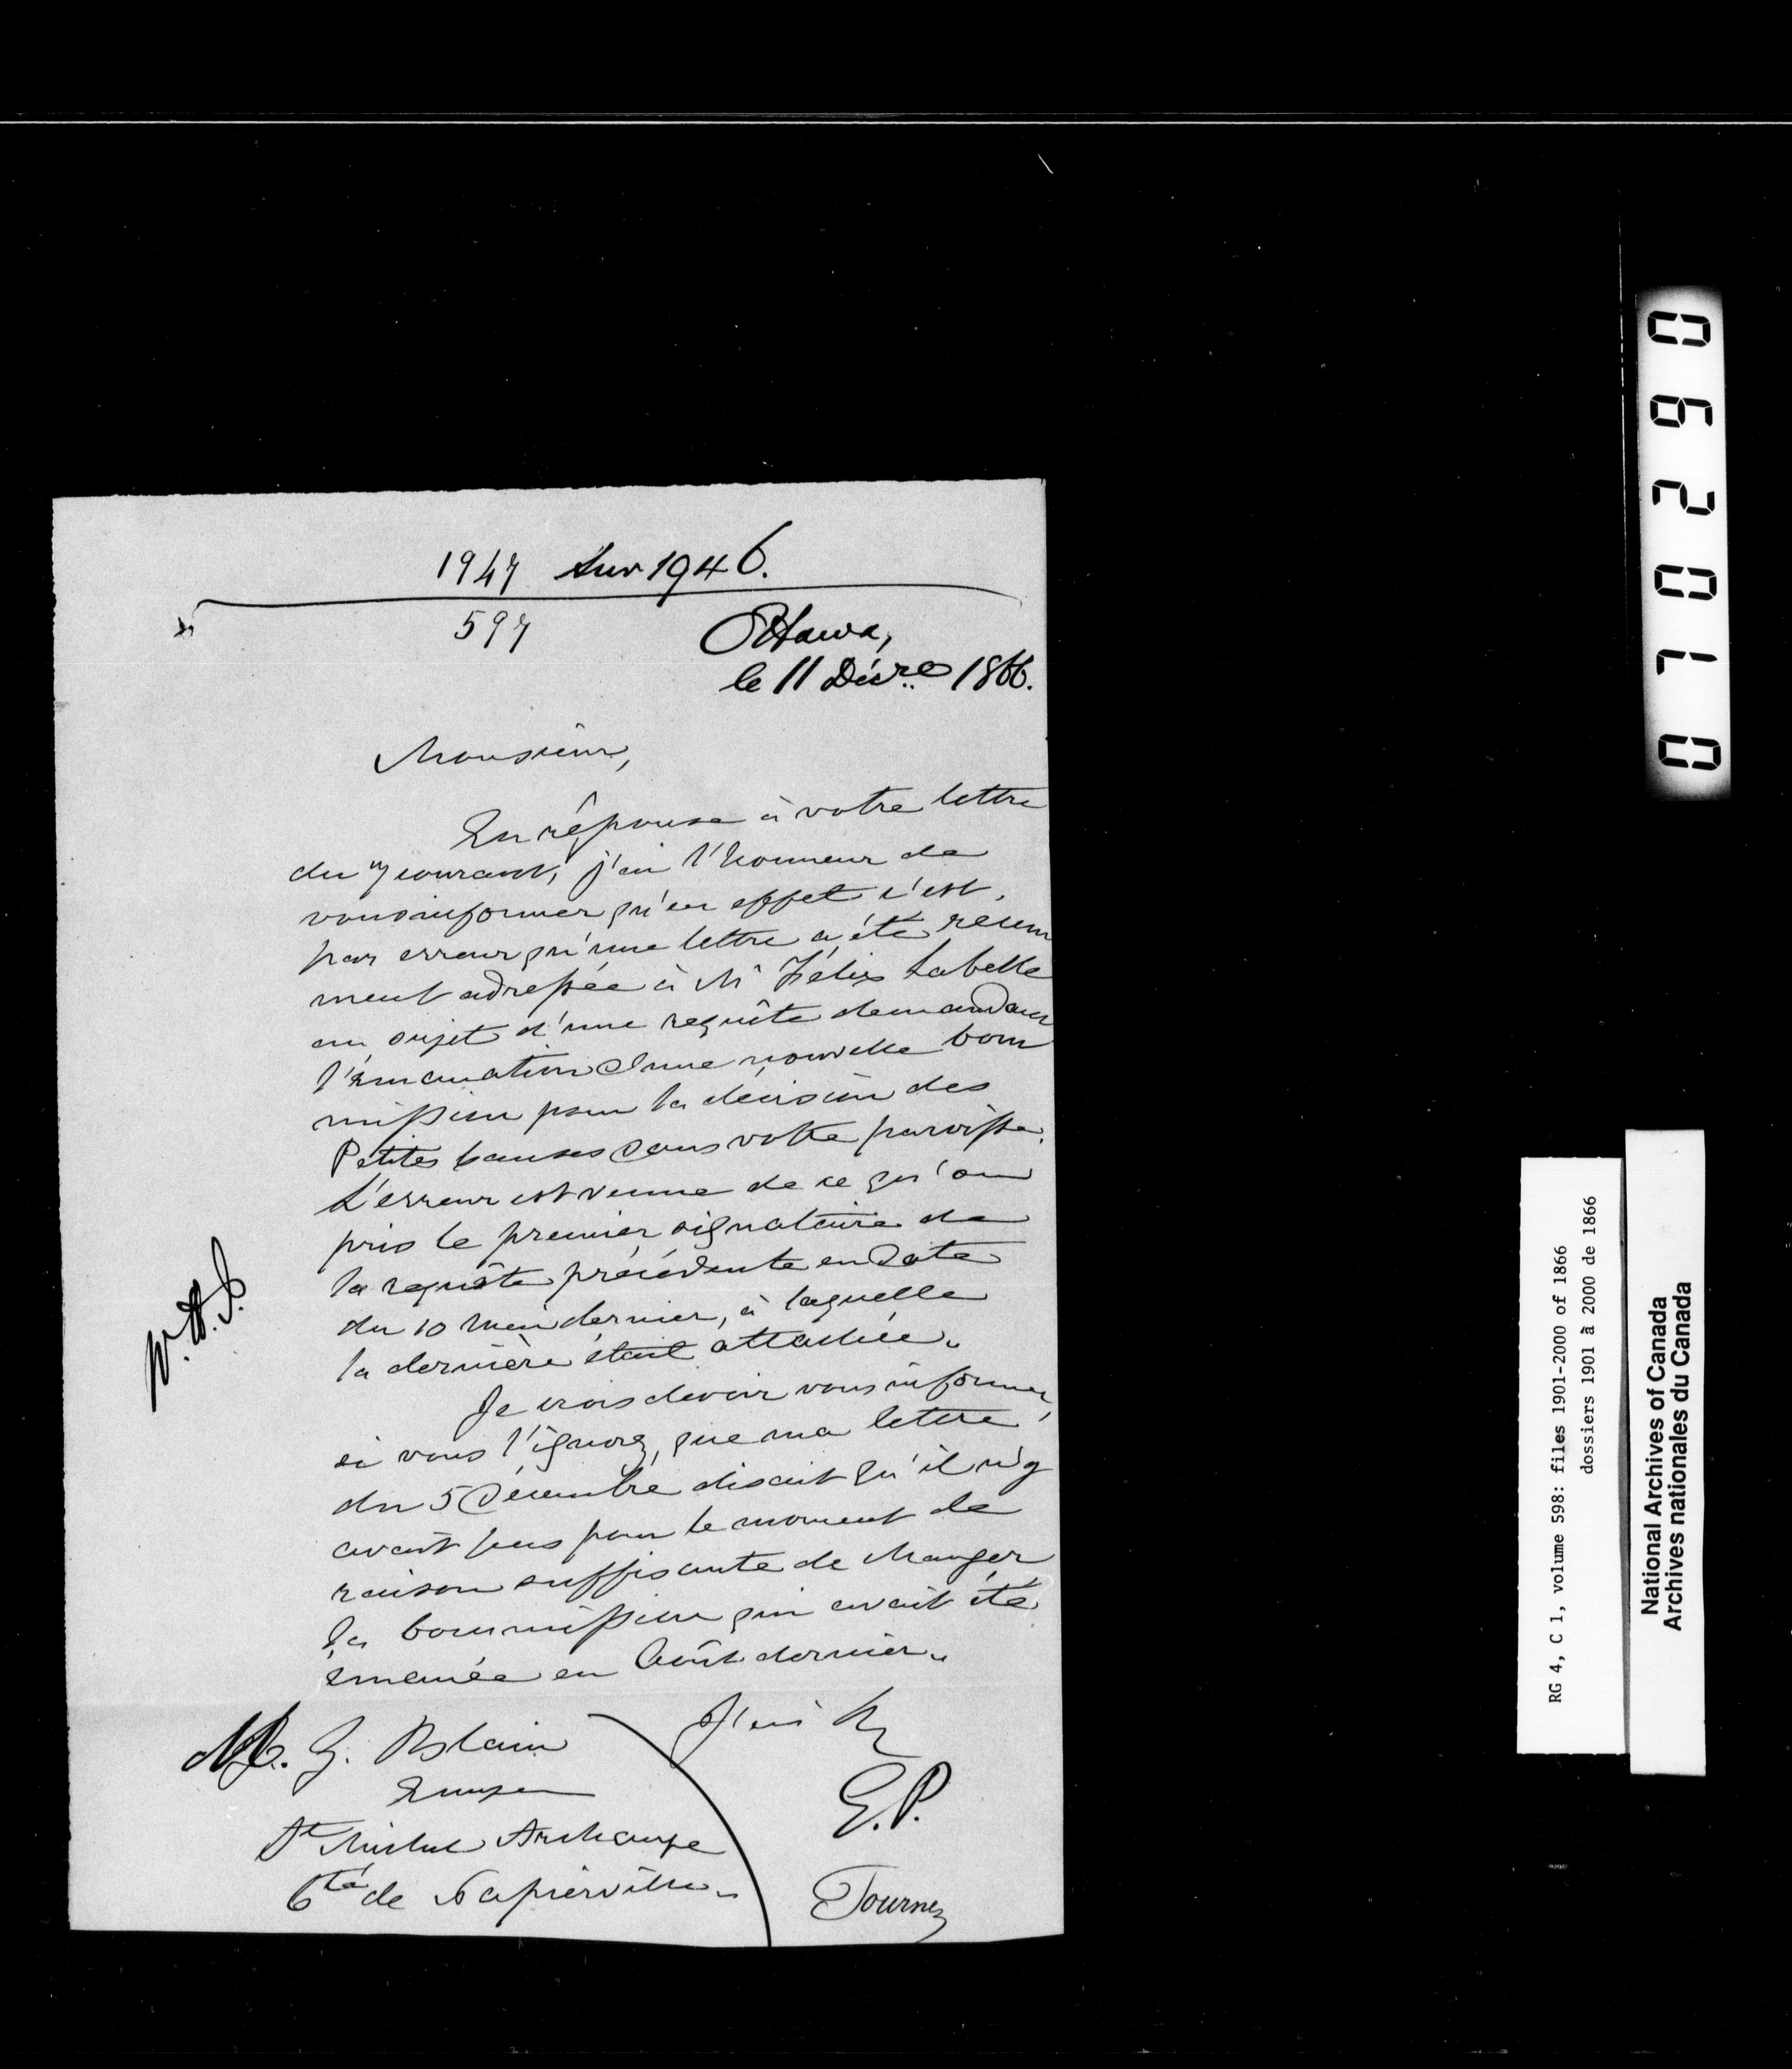 1947 sur 1946.
597
Ottawa,
le 11 Décre 1866.
Monsieur,
En réponse à votre lettre
du 7 courant, j'ai l'honneur de
vous informer qu'en effet c'est
par erreur qu'une lettre a été récem
ment adressée à Mr Félix Labelle
au sujet d'une requête demandant
l'émanation d'une nouvelle Com
mission pour la décision des
Petites Causes dans votre paroisse.
L'erreur est venue de ce qu'on
pris le premier signataire de
la requête précédente en date
du 10 Mai dernier, à laquelle
la dernière était attachée.
Je crois devoir vous informer,
si vous l'ignorez, que ma lettre
du 5 Décembre disait qu'il n'y
avait pas pour le moment de
raison suffisante de changer
la Commission qui avait été
émanée en Août dernier.
J'ai
E.P.
M. G.
St Michel Archange
Cté de Napierville.
Tournez
0 6 2 0 1 0
RG 4, C 1, volume 598: files 1901-2000 of 1866
dossiers 1901 à 2000 de 1866
National Archives of Canada
Archives nationales du Canada